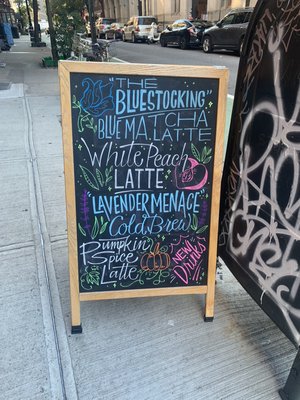 "THE
BLUESTOCKING"
BLUE MATCHA
LATTE
White Peach
LATTE
"LAVENDER MENACE"
Cold Brew
Pumpkin
Spice
Latte
NEW!
Drinks!